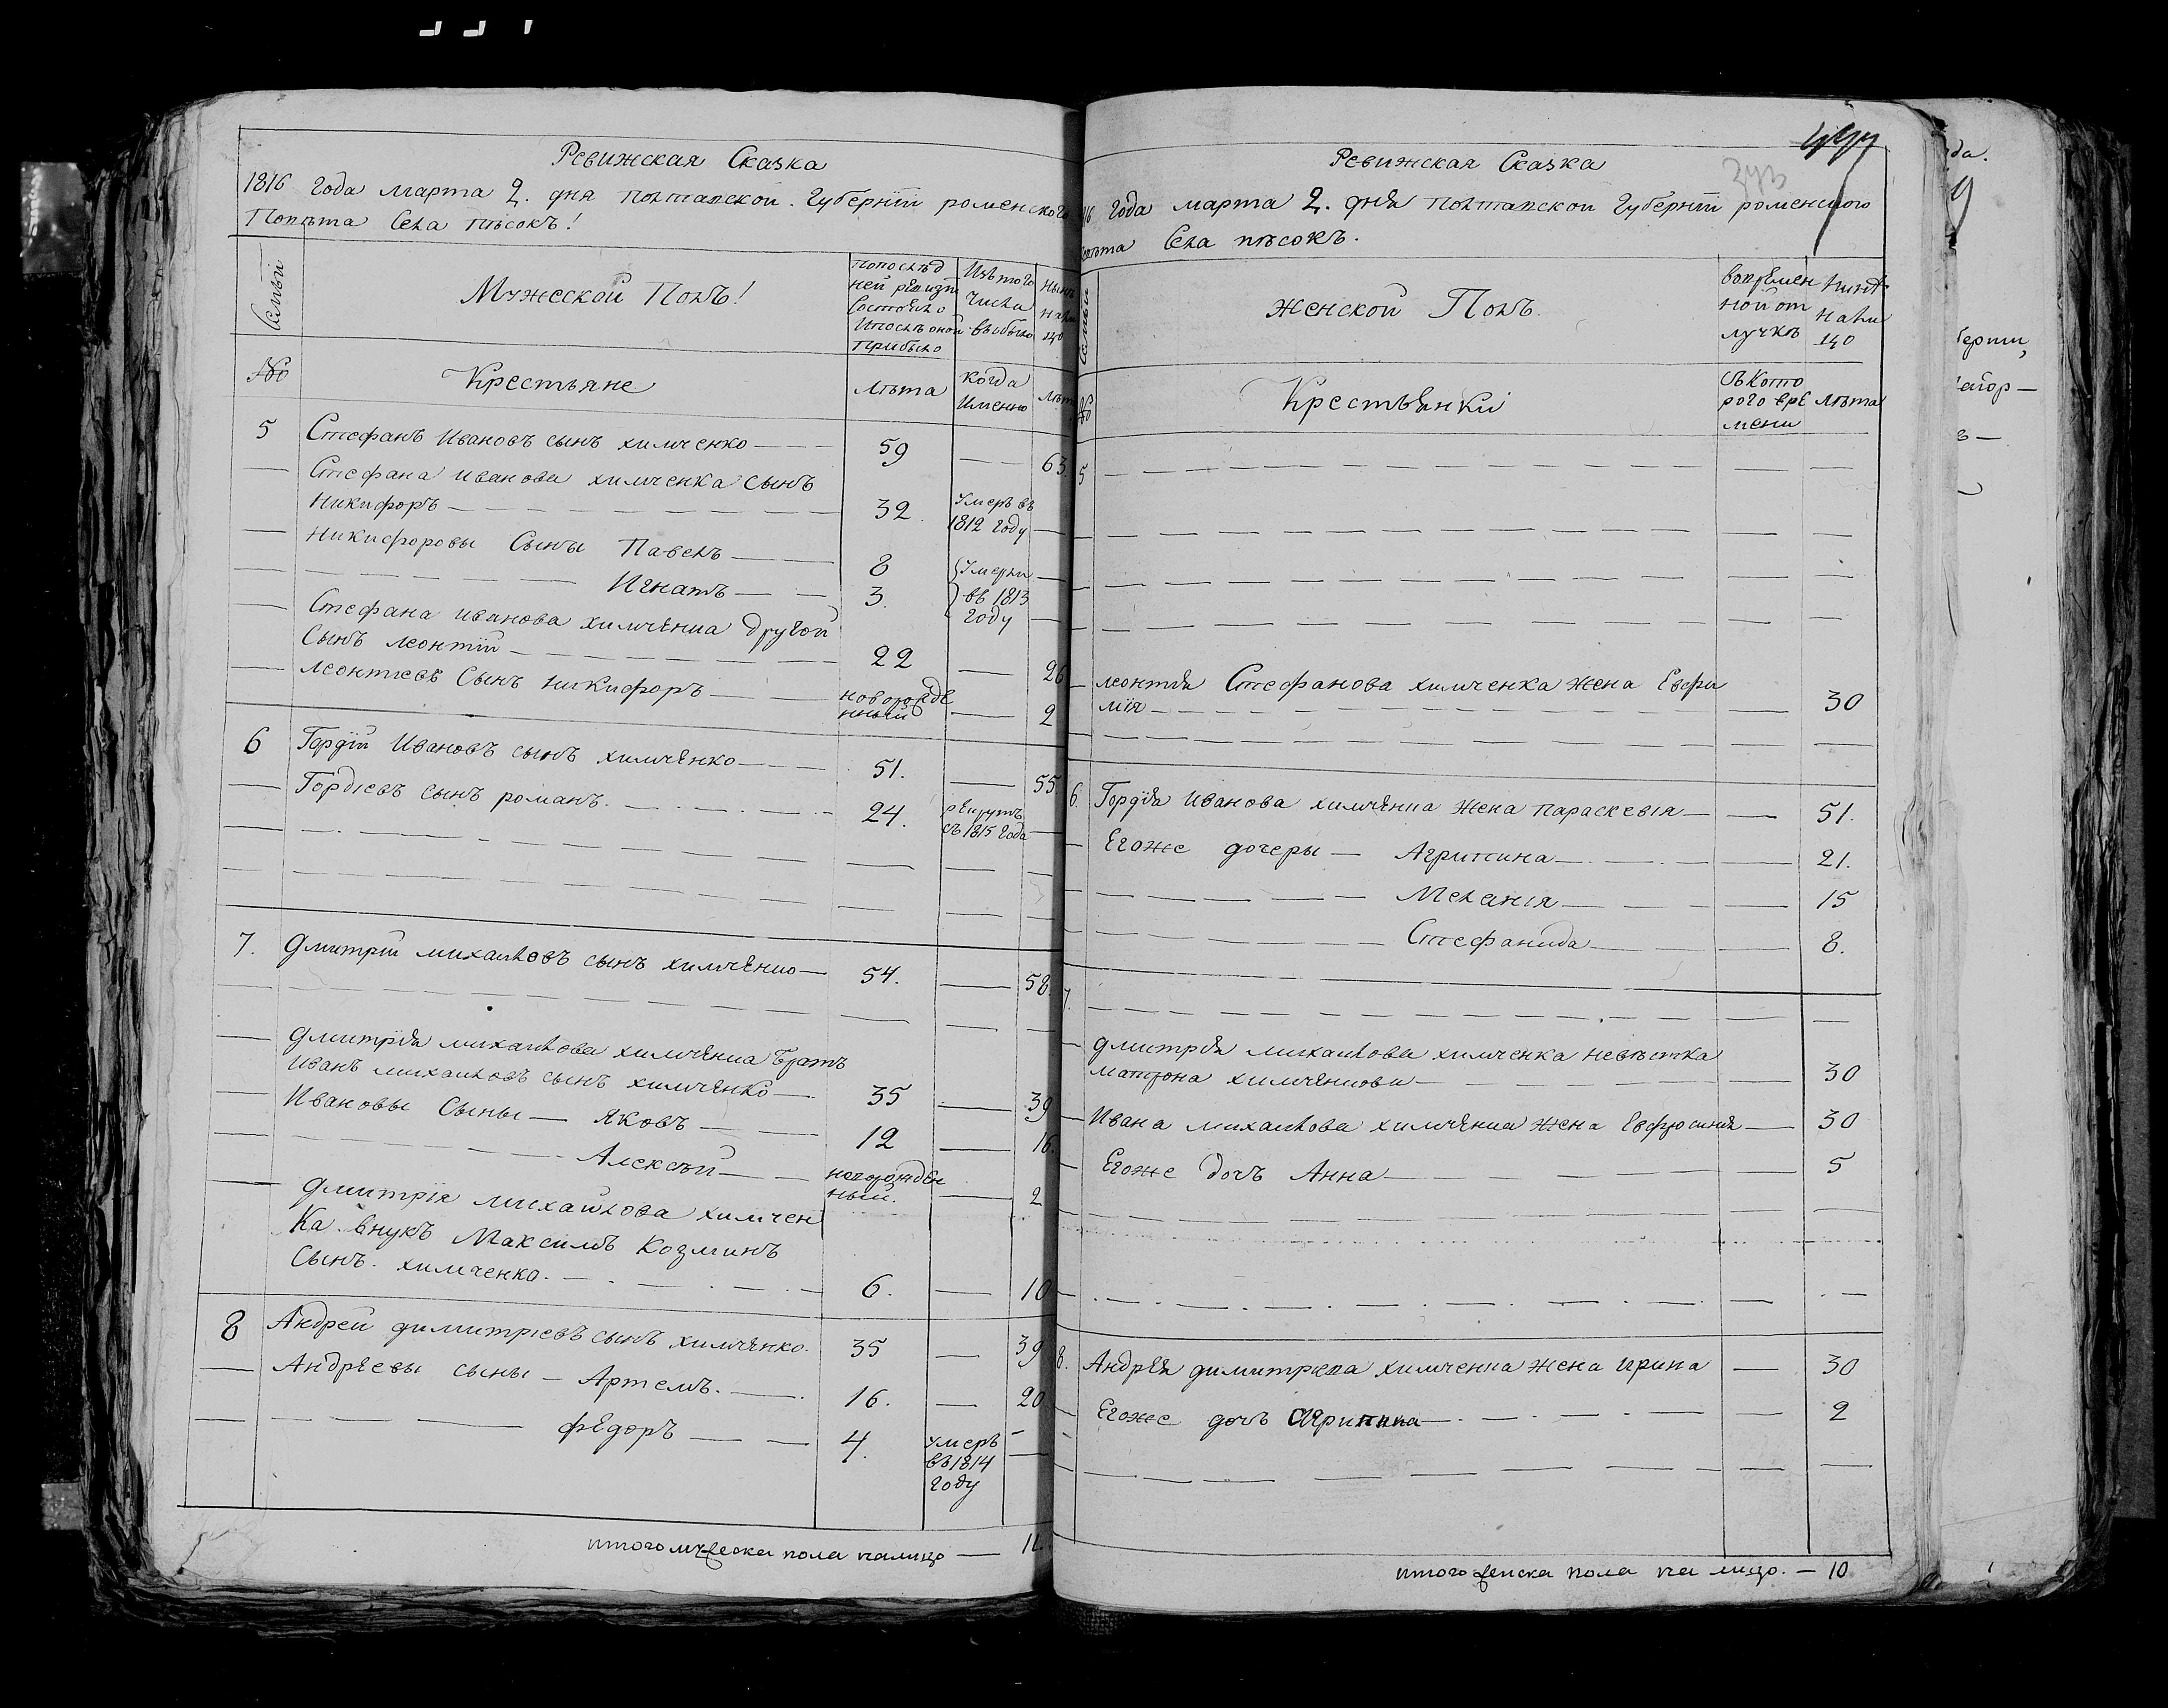 Ревижская Сказка
1816 года марта 2. дня полтавской. Губернїи роменского
Повѣта Села пѣсокъ!
Семьи
Мужеской Полъ!
Попослѣд
ней ревизїи
Состояло
Ипослѣ оной
прибыло
Изъ того
Числа
выбыло
Нынѣ
Нали
цо
№
Крестьяне
Лѣта
Когда
Именно
Лѣта
5 Стефанъ Ивановъ сынъ химченко — 59 — 63.
Стефана Иванова химченка Сынъ
Никифоръ — 32. Умеръ въ
1812 году —
Никифоровы Сыны Павелъ — 8 Умерли —
Игнатъ — 3. въ 1813
году —
Стефана иванова химченка другой
Сынъ леонтїй — 22 — 26
леонтїевъ Сынъ никифоръ — новорожде
нный — 2
6 Гордїй Ивановъ сынъ химченко — 51. — 55
Гордїевъ сынъ романъ. — 24. рекрутъ
съ 1815 года —
7. Дмитрїй михайловъ сынъ химченко — 54. — 58.
Дмитрїя михайлова химченка Братъ
Иванъ михайловъ сынъ химченко — 35 — 39
Ивановы Сыны — Яковъ — 12 — 16.
Алексѣй — новорожден
ный. — 2
Дмитрїя михайлова химчен
Ка внукъ Максимъ Козминъ
Сынъ. химченко. — 6. — 10
8 Андрей димитрїевъ сынъ химченко. 35 — 39
Андреевы сыны — Артемъ. — 16. — 20
Федоръ — 4. умеръ
въ 1814
году —
итого мужеска пола налицо — 11.
Ревижская Сказка
16 года марта 2. дня полтавской Губернїи роменского
повѣта Села пѣсокъ.
Семьи
Женской Полъ.
Вовремен
ной от
лучкѣ
Нынѣ
Нали
цо
№
Крестьянки
Съ Кото
рого вре
мени
Лѣта
5
леонтїя Стефанова химченка жена Евфи
мїя — 30
6. Гордїя Иванова химченка жена параскевїя — 51.
Егоже дочеры — Агрипина — 21.
Меланїя — 15
Стефанида — 8.
7.
Дмитрїя михайлова химченка невѣстка
матрона химченкова — 30
Ивана михайлова химченка жена Евфросинїя — 30
Егоже дочъ Анна — 5
8. Андрея димитрїева химченка жена ирина — 30
Егоже дочъ Агрипина — 2
итого женска пола на лицо. — 10